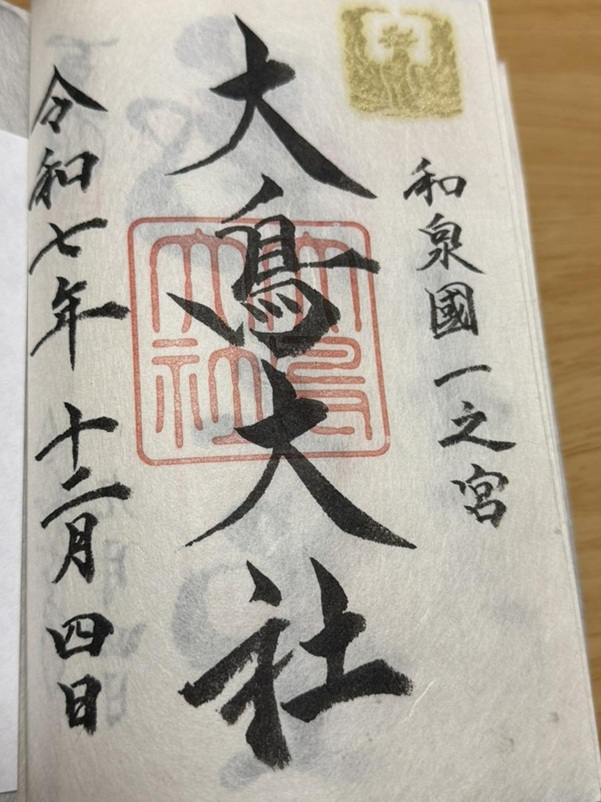 和泉國一之宮
大鳥大社
大鳥
大社
令和七年 十二月 四日